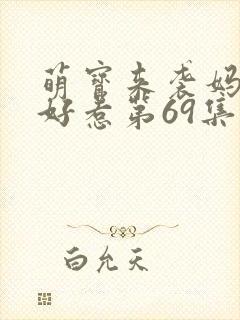 萌宝来袭妈
好惹第69集
白允天